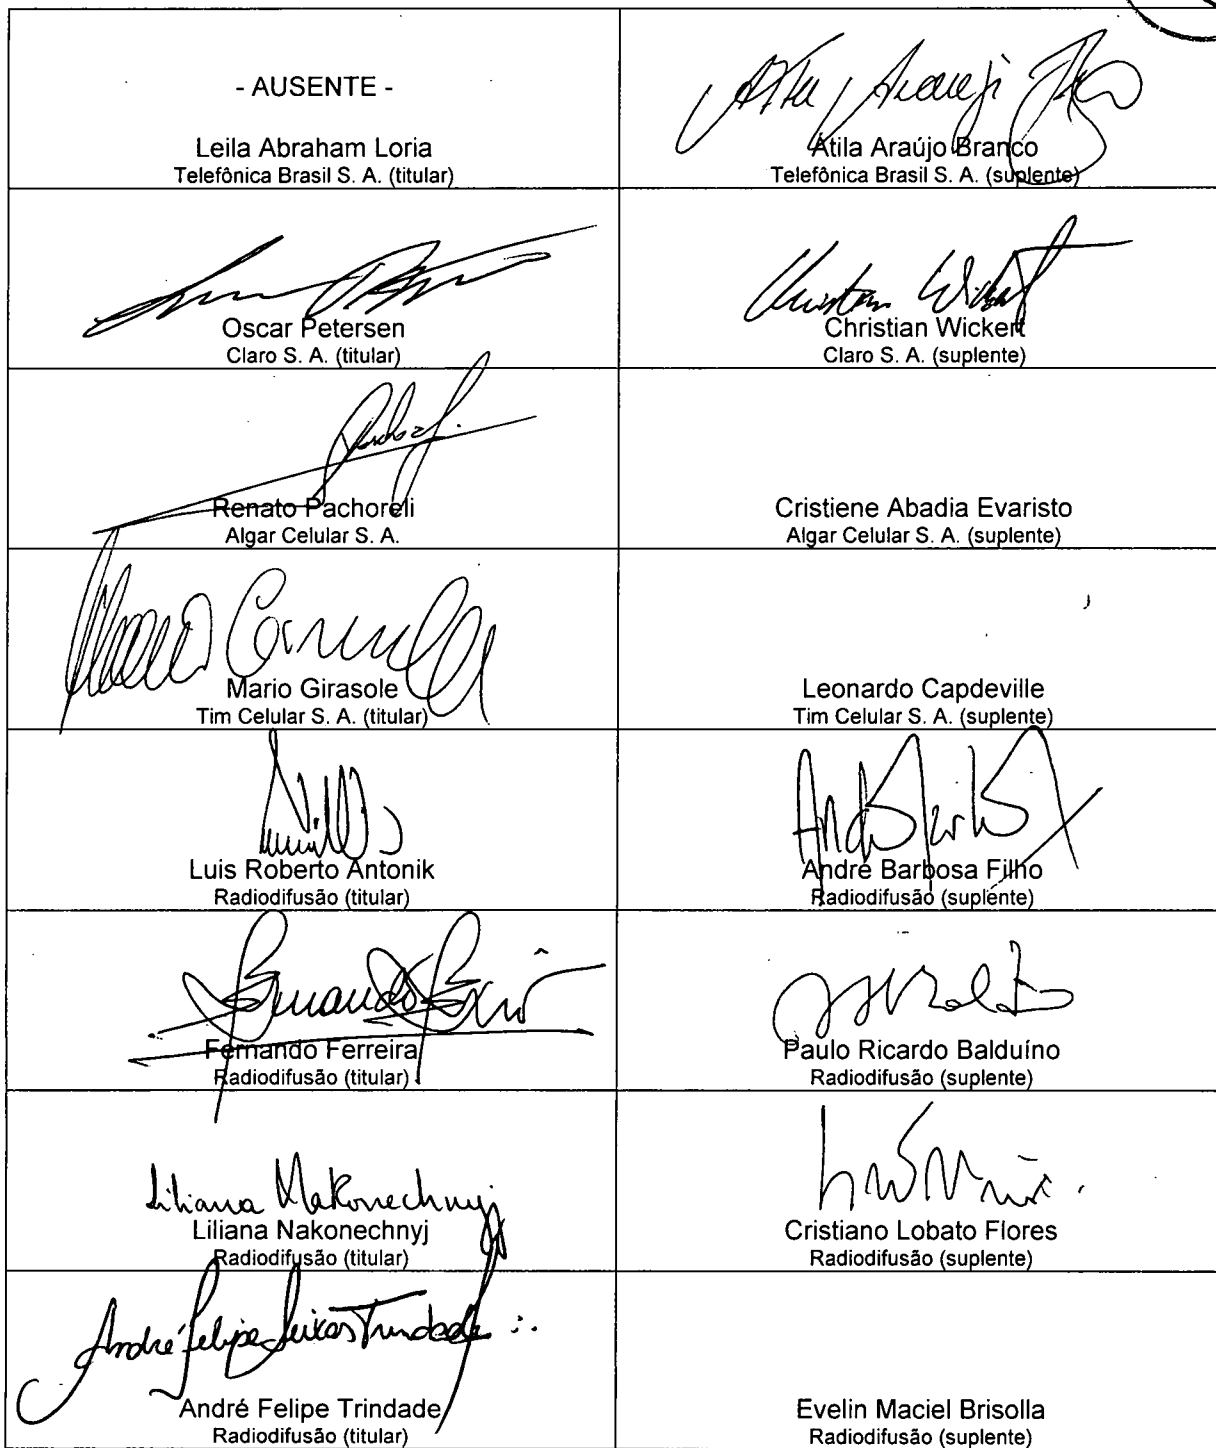 - AUSENTE -
Leila Abraham Loria
Telefônica Brasil S. A. (titular)
Átila Araújo Branco
Telefônica Brasil S. A. (suplente)
Oscar Petersen
Claro S. A. (titular)
Christian Wickert
Christian Wickert
Claro S. A. (suplente)
Renato Pachoreli
Algar Celular S. A.
Cristiene Abadia Evaristo
Algar Celular S. A. (suplente)
Mario Girasole
Tim Celular S. A. (titular)
Leonardo Capdeville
Tim Celular S. A. (suplente)
Luis Roberto Antonik
Radiodifusão (titular)
André Barbosa Filho
Radiodifusão (suplente)
Fernando Ferreira
Radiodifusão (titular)
Paulo Ricardo Balduíno
Radiodifusão (suplente)
Liliana Nakonechnyj
Liliana Nakonechnyj
Radiodifusão (titular)
Cristiano Lobato Flores
Radiodifusão (suplente)
André Felipe Seixas Trindade
André Felipe Trindade
Radiodifusão (titular)
Evelin Maciel Brisolla
Radiodifusão (suplente)